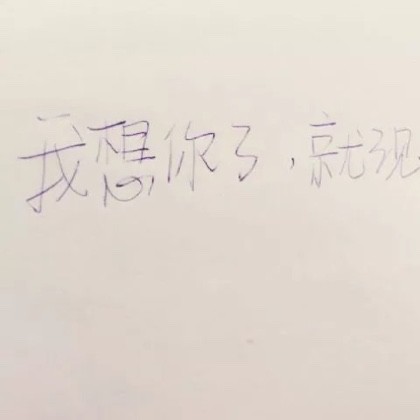 我想你了，就现